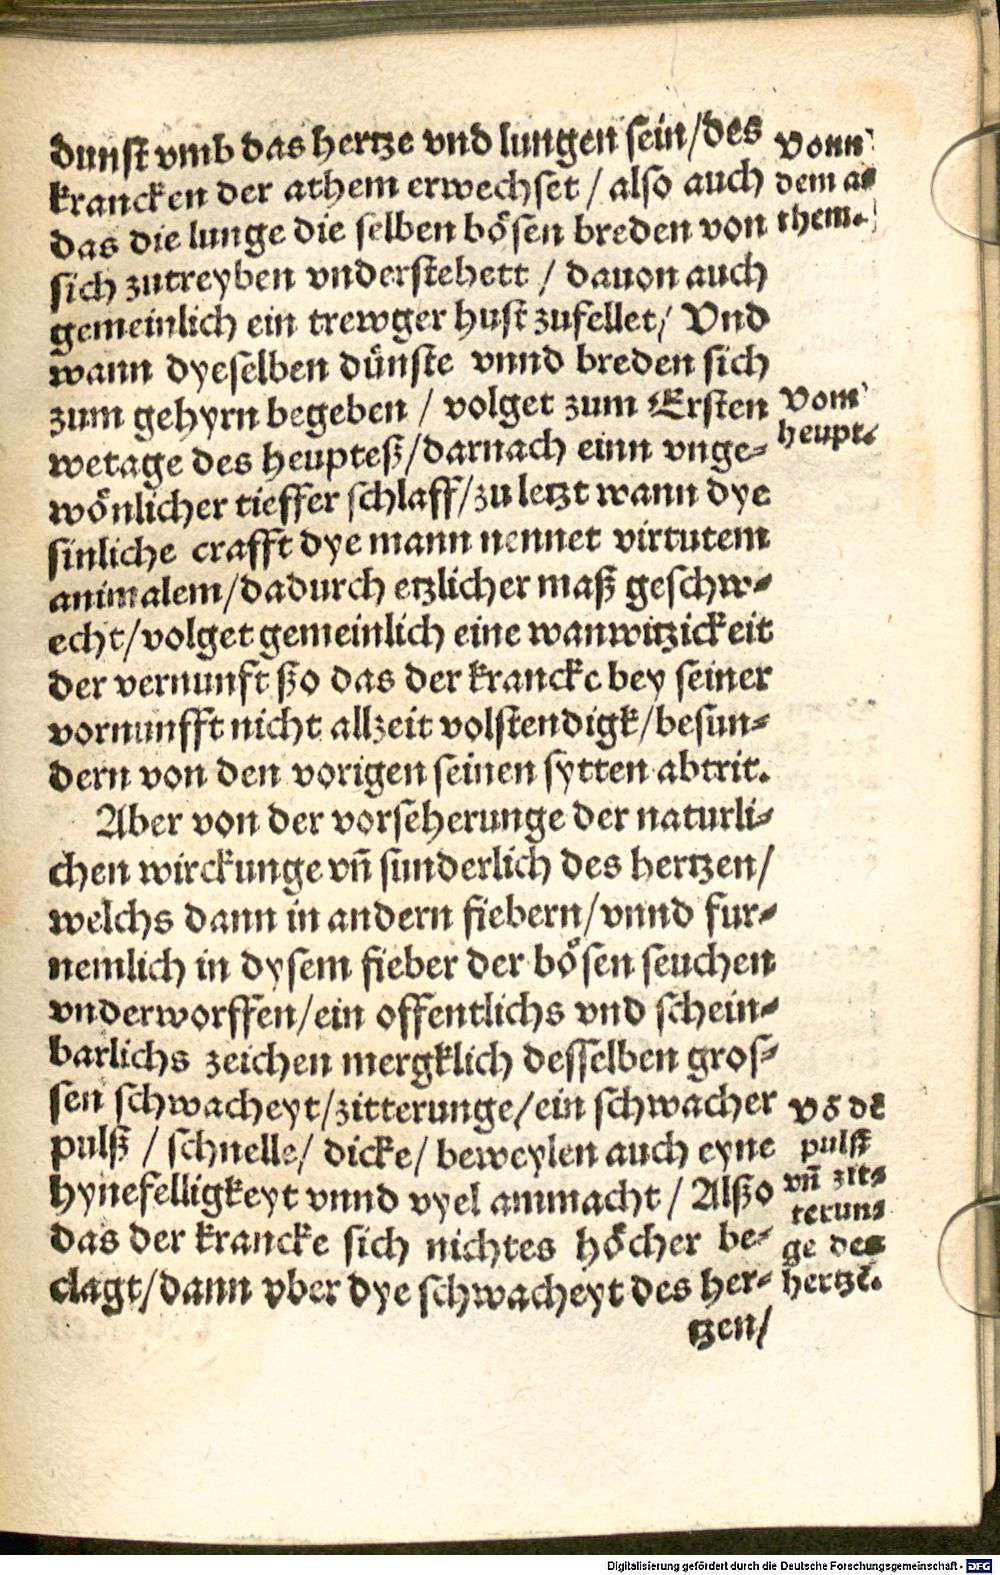 dunst vmb das hertze vnd lungen sein/des
krancken der athem erwechset / also auch
das die lunge die selben bösen breden von
sich zutreyben vnderstehett / dauon auch
gemeinlich ein trewger hust zufellet/ Vnd
wann dyeselben dünste vnnd breden sich
zum gehyrn begeben / volget zum Ersten
wetage des heupteß/darnach einn vnge-
wönlicher tieffer schlaff/zu letzt wann dye
sinliche crafft dye mann nennet virtutem
animalem/dadurch etzlicher maß geschw-
echt/volget gemeinlich eine wanwitzickeit
der vernunft ßo das der krancke bey seiner
vornunfft nicht allzeit volstendigk/besun-
dern von den vorigen seinen sytten abtrit.
Aber von der vorseherunge der naturli-
chen wirckunge vñ sunderlich des hertzen/
welchs dann in andern fiebern/vnnd fur-
nemlich in dysem fieber der bösen seuchen
vnderworffen/ein offentlichs vnd schein-
barlichs zeichen mergklich desselben gros-
sen schwacheyt/zitterunge/ein schwacher
pulß / schnelle/ dicke/ beweylen auch eyne
hynefelligkeyt vnnd vyel ammacht / Alßo
das der krancke sich nichtes höcher be-
clagt/dann vber dye schwacheyt des her-
tzen/
Vonn
dem a-
them.
Vom
heupt.
Võ dē
pulß
vñ zit-
terun-
ge des
hertzē.
Digitalisierung gefördert durch die Deutsche Forschungsgemeinschaft - DFG